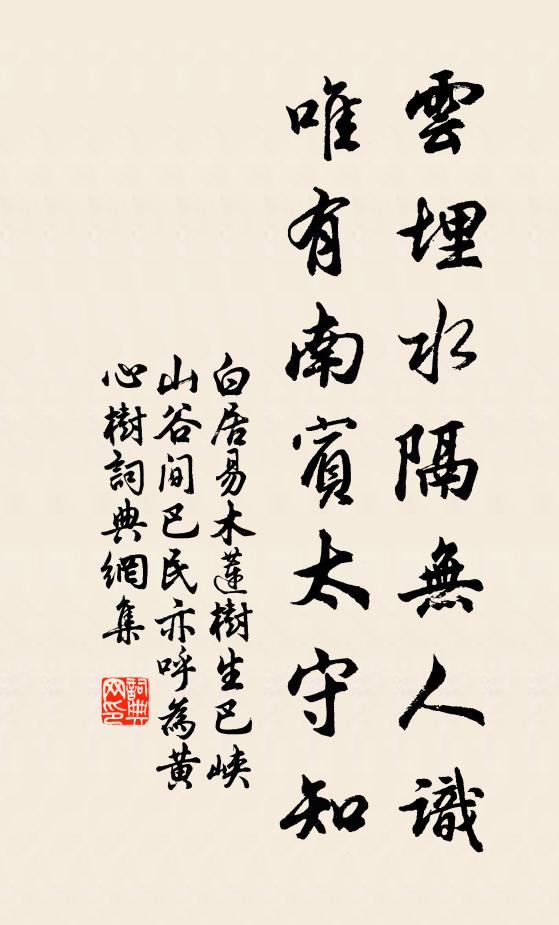 雲埋水隔無人識
唯有南賓太守知
白居易木蓮樹生巴峽
山谷间巴民亦呼為黃
心樹詞典網集
詞典
网印